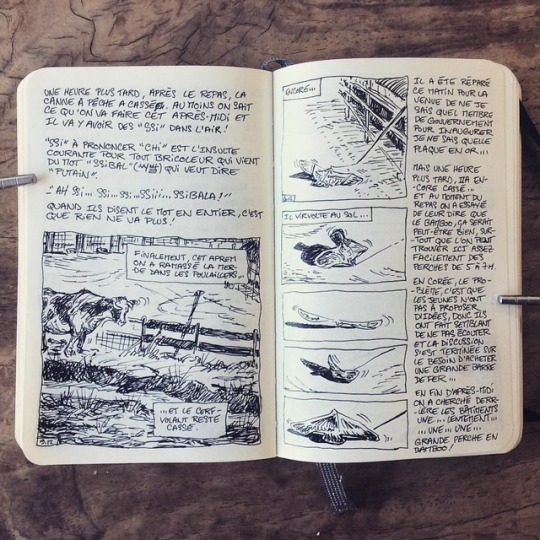 UNE HEURE PLUS TARD, APRÈS LE REPAS, LA
CANNE A PÊCHE A CASSÉ. AU MOINS ON SAIT
CE QU'ON VA FAIRE CET APRÈS-MIDI ET
IL VA Y AVOIR DES "SSI" DANS L'AIR!
"SSI" À PRONONCER "CHI" EST L'INSULTE
COURANTE POUR TOUT BRICOLEUR QUI VIENT
DU MOT "SSIBAL" (씨발) QUI VEUT DIRE
"PUTAIN".
"AH SSI... SSI... SSI... SSIII... SSIBALA!"
QUAND ILS DISENT LE MOT EN ENTIER, C'EST
QUE RIEN NE VA PLUS!
FINALEMENT, CET APREM
ON A RAMASSÉ LA MER-
DE DANS LES POULAILLERS...
...ET LE CERF-
VOLANT RESTE
CASSÉ.
ENCORE...
IL VIRVOLTE AU SOL...
IL A ÉTÉ RÉPARÉ
CE MATIN POUR LA
VENUE DE NE JE
SAIS QUEL MEMBRE
DE GOUVERNEMENT
POUR INAUGURER
JE NE SAIS QUELLE
PLAQUE EN OR...
MAIS UNE HEURE
PLUS TARD, IL A EN-
CORE CASSÉ...
ET AU MOMENT DU
REPAS ON A ESSAYÉ
DE LEUR DIRE QUE
LE BAMBOO, ÇA SERAIT
PEUT-ÊTRE BIEN, SUR-
TOUT QUE L'ON PEUT
TROUVER ICI ASSEZ
FACILEMENT DES
PERCHES DE 5 À 7 M.
EN CORÉE, LE PRO-
BLÈME, C'EST QUE
LES JEUNES N'ONT
PAS À PROPOSER
D'IDÉES, DONC ILS
ONT FAIT SEMBLANT
DE NE PAS ÉCOUTER
ET LA DISCUSSION
S'EST TERMINÉE SUR
LE BESOIN D'ACHETER
UNE GRANDE BARRE
DE FER...
EN FIN D'APRÈS-MIDI
ON A CHERCHÉ DERR-
IÈRE LES BÂTIMENTS
UNE... LENTEMENT...
... UNE... UNE...
GRANDE PERCHE EN
BAMBOO!